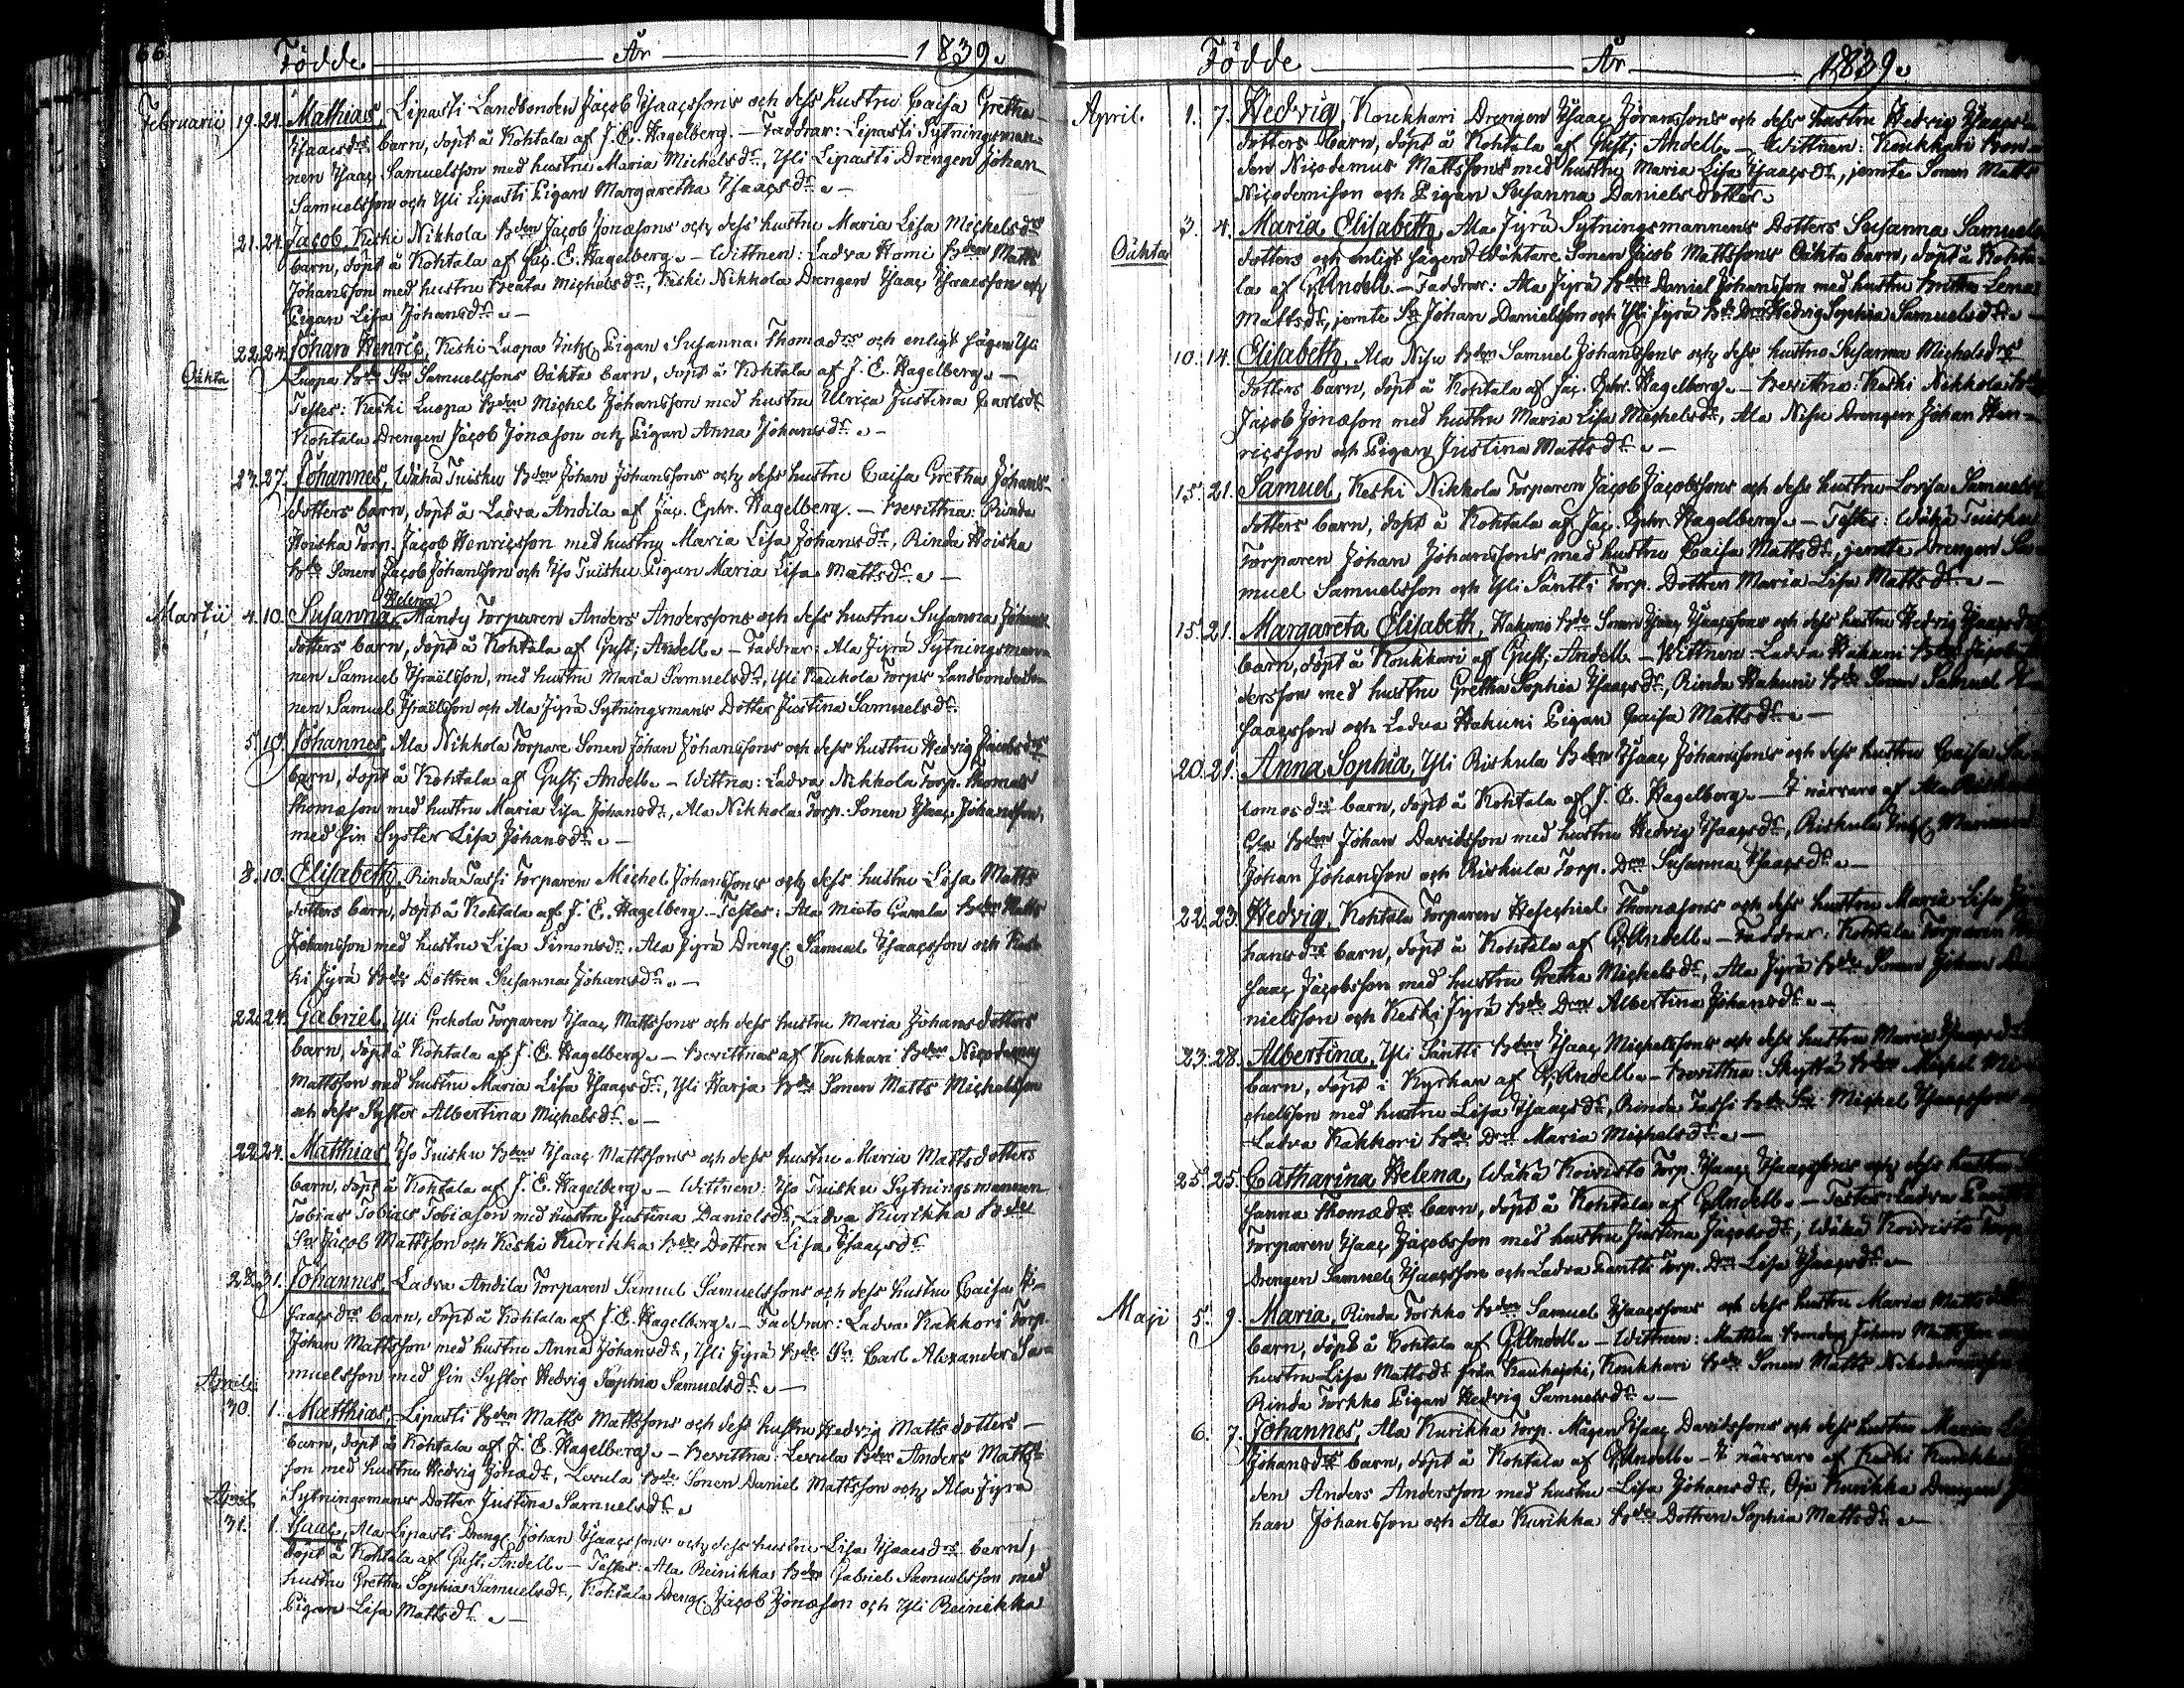 66
Födde År 1839.
Februarii 19. 24. Mathias, Lipasti Landbonden Jacob Isaacssons och dess hustru Caisa Gretha
Isaacsdrs barn, döpt å Kohtala af J. E. Hagelberg. – Faddrar: Lipasti Sytningsman-
nen Isaac Samuelsson med hustru Maria Michelsdr, Yli Lipasti Drengen Johan
Samuelsson och Yli Lipasti Pigan Margaretha Isaacsdr. –
21. 24. Jacob, Keski Nikkola Bden Jacob Jonæsons och dess hustru Maria Lisa Michelsdrs
barn, döpt å Kohtala af Jac. E. Hagelberg. – Wittnen: Ladva Homi Bden Matts
Johansson med hustru Beata Michelsdr, Keski Nikkola Drengen Isaac Isaacsson och
Pigan Lisa Johansdr. –
22. 24. Johan Henric, Keski Luopa Inhs Pigan Susanna Thomædrs och enligt sägen Yli
Oäkta Luopa Bde Sn Samuelssons Oäkta barn, döpt å Kohtala af J. E. Hagelberg. –
Testes: Keski Luopa Bden Michel Johansson med hustru Ulrica Justina Carlsdr
Kohtala Drengen Jacob Jonæson och Pigan Anna Johansdr. –
23. 27. Johannes, Wähä Tuisku Bden Johan Johanssons och dess hustru Caisa Gretha Johans-
dotters barn, döpt å Ladva Andila af Jac. Ephr. Hagelberg. – Bevittna: Rinda
Hoiska Torp. Jacob Henricsson med hustru Maria Lisa Johansdr, Rinda Hoiska
Bde Sonen Jacob Johansson och Iso Tuisku Pigan Maria Lisa Mattsdr. –
Helena
Martii 4. 10. Susanna, Mändy Torparen Anders Anderssons och dess hustru Susanna Johans
dotters barn, döpt å Kohtala af Gust; Andell. – Faddrar: Ala Jyrä Sytningsman
nen Samuel Israëlsson, med hustru Maria Samuelsdr, Yli Kauhola Torps Landbondeso
nen Samuel Israëlsson och Ala Jyrä Sytningsmans Dotter Justina Samuelsdr.
5. 10. Johannes, Ala Nikkola Torpare Sonen Johan Johanssons och dess hustru Hedvig Jacobsdrs
barn, döpt å Kohtala af Gust; Andell. – Wittna: Ladva Nikkola Torp. Thomas
Thomæson med hustru Maria Lisa Johansdr, Ala Nikkola Torp. Sonen Isaac Johansson,
med sin Syster Lisa Johansdr. –
8. 10. Elisabeth, Rinda Tassi Torparen Michel Johanssons och dess hustru Lisa Matts
dotters barn, döpt å Kohtala af J. E. Hagelberg. – Testes: Ala Mieto Gamla Bden Matts
Johansson med hustru Lisa Simonsdr. Ala Jyrä Drengs Samuel Isaacsson och Kes-
ki Jyrä Bde Dottren Susanna Johansdr. –
22. 24. Gabriel, Yli Grekola Torparen Isaac Mattssons och dess hustru Maria Johansdotters
barn, döpt å Kohtala af J. E. Hagelberg. – Bevittnas af Koukkari Bden Nicodemus
Mattsson med hustru Maria Lisa Isaacsdr, Yli Harja Bde Sonen Matts Michelsson
och dess Syster Albertina Michelsdr. –
22. 24. Matthias, Iso Tuisku Bden Isaac Mattssons och dess hustru Maria Mattsdotters
barn, döpt å Kohtala af J. E. Hagelberg. – Wittnen: Iso Tuisku Sytningsmannen
Tobias Tobiæ Tobiæson med hustru Justina Danielsdr, Ladva Kurikka Bde
Sn Jacob Mattsson och Keski Kurikka Bde Dottren Lisa Isaacsdr
28. 31. Johannes, Ladva Andila Torparen Samuel Samuelssons och dess hustru Caisa I-
saacsdrs barn, döpt å Kohtala af J. E. Hagelberg. – Faddrar: Ladva Kakkori Torp.
Johan Mattsson med hustru Anna Johansdr, Yli Jyrä Bde Sn Carl Alexander Sa-
muelsson med sin Syster Hedvig Sophia Samuelsdr. –
Aprilii
30. 1. Matthias, Lipasti Bden Matts Mattssons och dess hustru Hedvig Mattsdotters –
barn, döpt å Kohtala af J. E. Hagelberg. – Bevittna: Levula Bden Anders Matts-
son med hustru Hedvig Jonædr, Levula Bde Sonen Daniel Mattsson och Ala Jyrä
Sytningsmans Dotter Justina Samuelsdr.
April
31. 1. Isaac, Ala Lipasti Drengs Johan Isaacssons och dess hustru Lisa Isaacsdrs barn,
döpt å Kohtala af Gust. Andell. – Testes: Ala Reinikka Bden Gabriel Samuelsson med
hustru Gretha Sophia Samuelsdr, Kohtala Drengs Jacob Jonæson och Yli Reinikka
Pigan Lisa Mattsdr. –
Födde År 1839.
April. 1. 7. Hedvig, Koukkari Drengen Isaac Jöranssons och dess hustru Hedvig Isaacs
dotters barn, döpt å Kohtala af Gust; Andell. – Wittnen: Koukkari Bon-
den Nicodemus Mattssons med hustru Maria Lisa Isaacsdr, jemte Sonen Matts
Nicodemison och Pigan Susanna Daniels dotter.
3. 4. Maria Elisabeth, Ala Jyrä Sytningsmannens Dotters Susanna Samuels
Oäkta dotters och enligt sägen Wäktare Sonen Jacob Mattssons Oäkta barn, döpt å Kohta-
la af G. Andell. – Faddrar: Ala Jyrä Bden Daniel Johansson med hustru Britta Lena
Mattsdr, jemte Sn Johan Danielsson och Yli Jyrä Bde Drn Hedvig Sophia Samuelsdr. –
10. 14. Elisabeth, Ala Nisu Bden Samuel Johanssons och dess hustru Susanna Michelsdrs
dotters barn, döpt å Kohtala af Jac. Ephr. Hagelberg. – Bevittna: Keski Nikkola
Jacob Jonæson med hustru Maria Lisa Michelsdr, Ala Nisu Drengen Johan Hen-
ricsson och Pigan Justina Mattsdr. –
15. 21. Samuel, Keski Nikkola Torparen Jacob Jacobssons och dess hustru Lovisa Samuels
dotters barn, döpt å Kohtala af Jac. Ephr. Hagelberg. – Testes: Wähä Tuisku
Torparen Johan Johanssons med hustru Caisa Mattsdr, jemte Drengen Sa
muel Samuelsson och Yli Säntti Torp. Dottren Maria Lisa Mattsdr. –
15. 21. Margareta Elisabeth, Hakuno Bde Sonen Isaac Isaacssons och dess hustru Hedvig Isaacsdrs
barn, döpt å Koukkari af Gust; Andell. – Wittnen: Ladva Hakuni
dersson med hustru Gretha Sophia Isaacsdr, Rinda Hakuni Bde Sonen Samuel I-
saacsson och Ladva Hakuni Pigan Caisa Mattsdr. –
20. 21. Anna Sophia, Yli Riskula Bden Isaac Johanssons och dess hustru Caisa Sa
lomosdrs barn, döpt å Kohtala af J. E. Hagelberg. – I närvaro af Ala
Bden Johan Davidsson med hustru Hedvig Isaacsdr, Riskula
Johan Johansson och Riskula Torp. Drn Susanna Isaacsdr. –
22. 23. Hedvig, Kohtala Torparen Hesechiel Thomæsons och dess hustru Maria Lisa Jo
hansdrs barn, döpt å Kohtala af G. Andell. – Faddrar: Kohtala Torparen
saac Jacobsson med hustru Gretha Michelsdr, Ala Jyrä Bde Sonen Johan Da
nielsson och Keski Jyrä Bde Drn Albertina Johansdr. –
23. 28. Albertina, Yli Säntti Bden Isaac Michelssons och dess hustru Maria Isaacsdrs
barn, döpt i Kyrkan af G. Andell. – Bevittna: Skyttä Bden Michel Mi
chelsson med hustru Lisa Isaacsdr, Rinda Tassi Bde Sn Michel Isaacsson
Ladva Kakkori Bde Drn Maria Michelsdr. –
25. 25. Catharina Helena, Wähä Koivisto Torp. Isaac Isaacssons och dess hustru
sanna Thomædrs barn, döpt å Kohtala af G. Andell. – Testes: Ladva
Torparen Isaac Jacobsson med hustru Justina Jacobsdr, Wähä Koivisto Torp.
Drengen Samuel Isaacsson och Ladva Pantti Torp. Drn Lisa Isaacsdr. –
Maji 5. 9. Maria, Rinda Torkko Bden Samuel Isaacssons och dess hustru Maria Matts
barn, döpt å Kohtala af G. Andell. – Wittnen: Mattila Bonden Johan Mattsson
hustru Lisa Mattsdr från Kauhajoki, Koukkari Bde Sonen Matts
Rinda Torkko Pigan Hedvig Samuelsdr. –
6. 7. Johannes, Ala Kurikka Torp. Mågen Isaac Davidssons och dess hustru Maria
Johansdrs barn, döpt å Kohtala af G. Andell. – I närvaro af Keski Kurikka
den Anders Andersson med hustru Lisa Johansdr, Oja Kurikka Drengen Jo
han Johansson och Ala Kurikka Bde Dottren Sophia Mattsdr. –